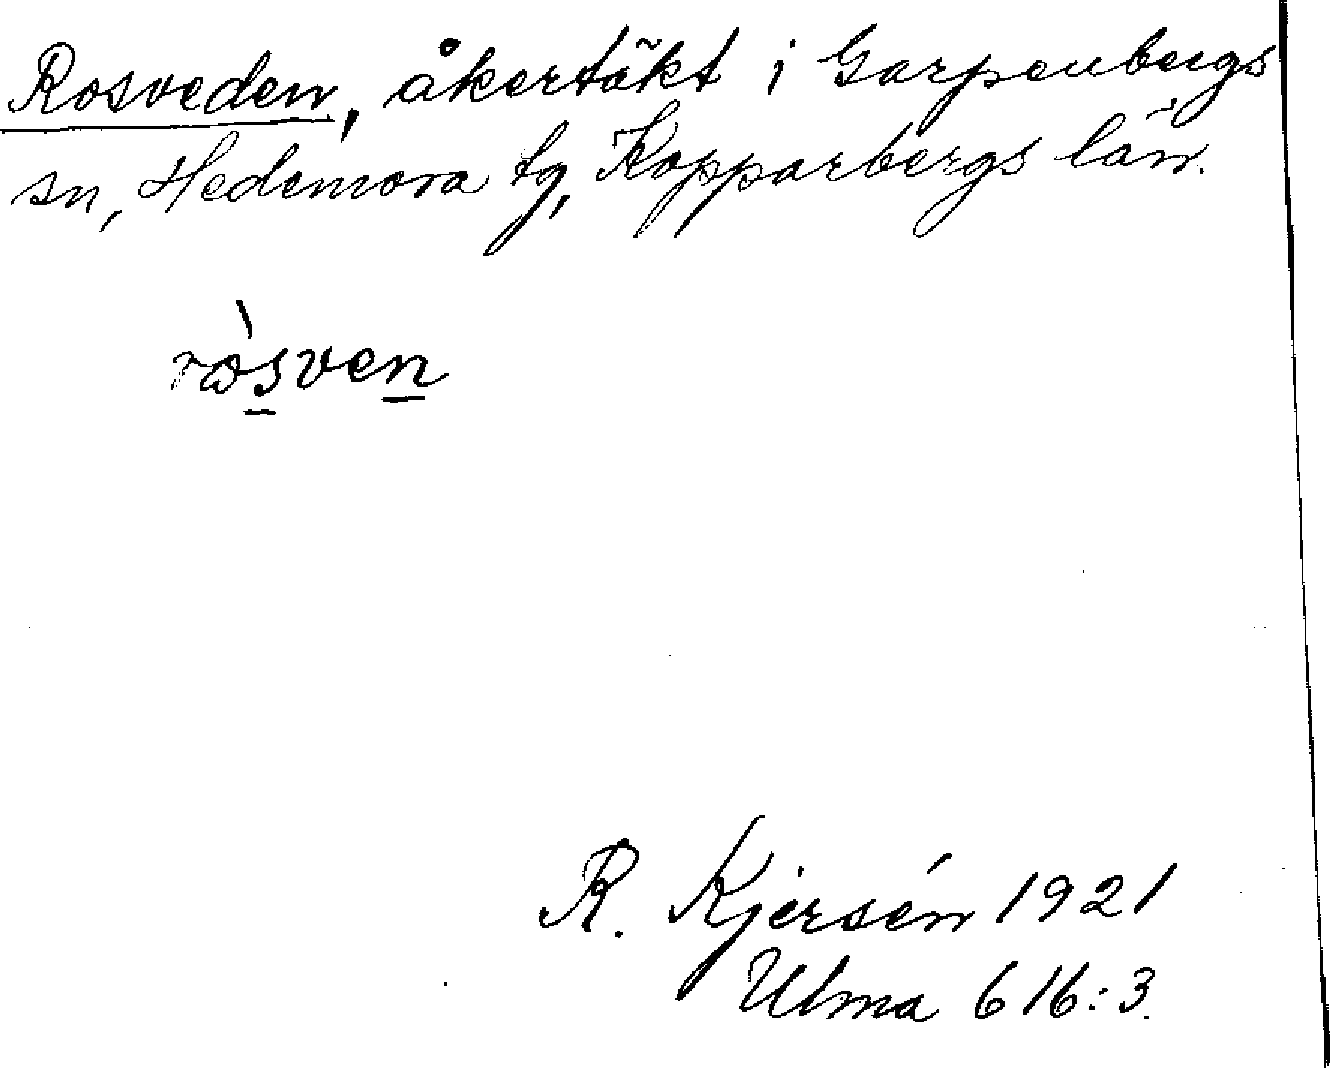 Rosveden, åkertäkt i Garpenbergs
sn, Hedemora tg, Kopparbergs län.
ròsven
R. Kjersén 1921
Ulma 616:3.